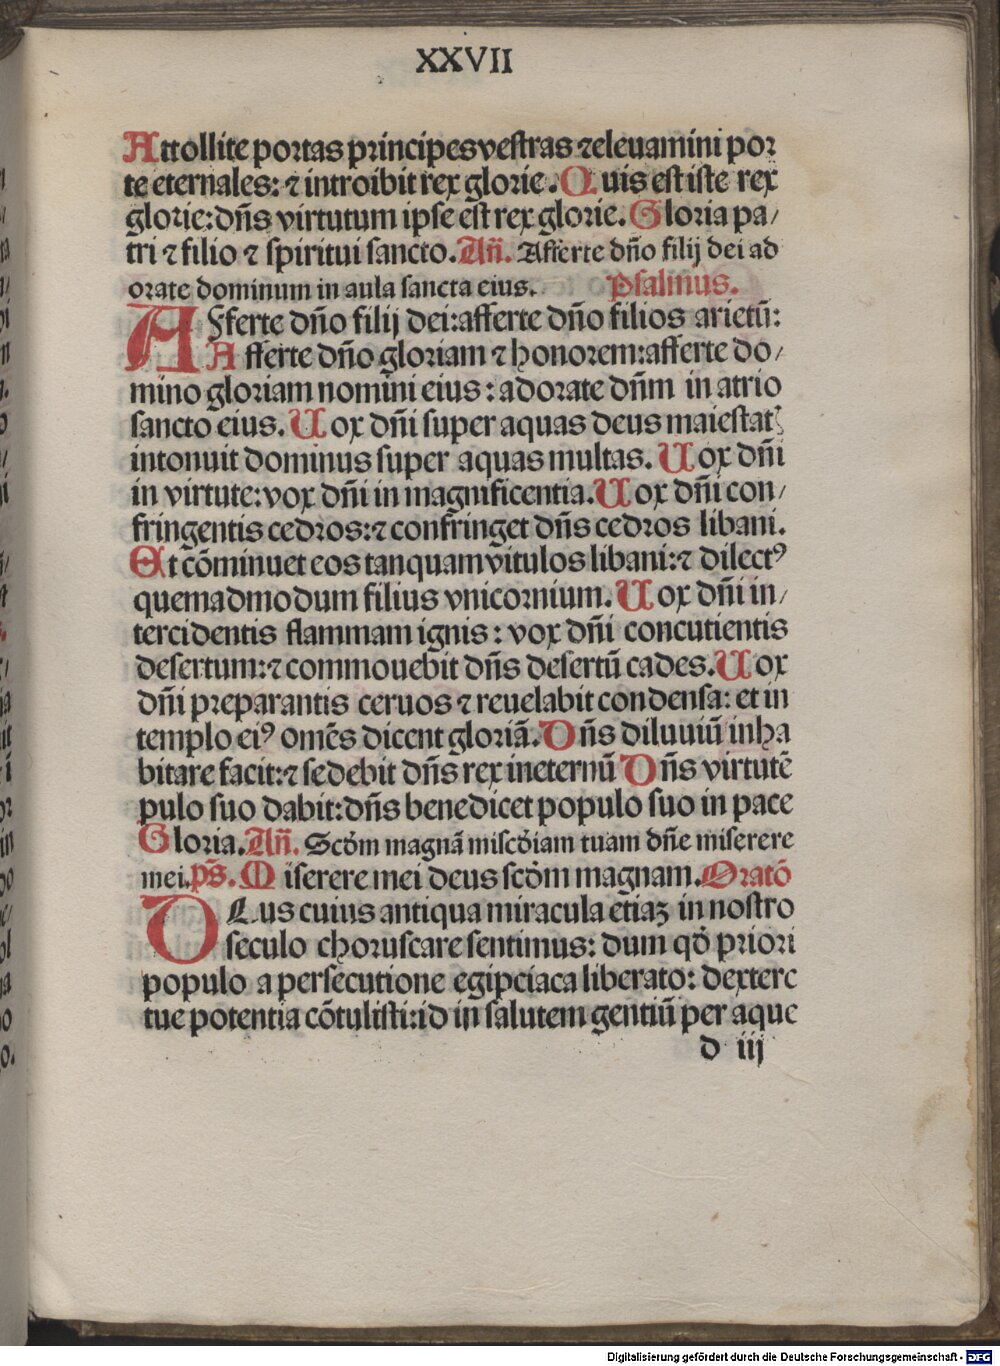 XXVII
Attollite portas principes vestras ⁊ eleuamini por
te eternales: ⁊ introibit rex glorie. Quis est iste rex
glorie: dn̄s virtutum ipse est rex glorie. Gloria pa/
tri ⁊ filio ⁊ spiritui sancto. Añ. Afferte dño filij dei ad
orate dominum in aula sancta eius. Psalmus.
AFferte dño filij dei: afferte dño filios arietū:
Afferte dño gloriam ⁊ honorem: afferte do/
mino gloriam nomini eius: adorate dn̄m in atrio
sancto eius. Uox dn̄i super aquas deus maiestatꝭ
intonuit dominus super aquas multas. Uox dn̄i
in virtute: vox dn̄i in magnificentia. Uox dn̄i con/
fringentis cedros: ⁊ confringet dn̄s cedros libani.
Et cōminuet eos tanquam vitulos libani: ⁊ dilectꝰ
quemadmodum filius vnicornium. Uox dn̄i in/
tercidentis flammam ignis: vox dn̄i concutientis
desertum: ⁊ commouebit dn̄s desertū cades. Uox
dn̄i preparantis ceruos ⁊ reuelabit condensa: et in
templo eiꝰ omēs dicent gloriā. Dn̄s diluuiū inha
bitare facit: ⁊ sedebit dn̄s rex in eternū Dn̄s virtutē
pulo suo dabit: dn̄s benedicet populo suo in pace
Gloria. Añ. Scd̄m magnā misc̄diam tuam dn̄e miserere
mei. p̄s. Miserere mei deus scd̄m magnam. Oratō
DEus cuius antiqua miracula etiaꝫ in nostro
seculo choruscare sentimus: dum qd̄ priori
populo a persecutione egipciaca liberato: dextere
tue potentia cōtulisti: id in salutem gentiū per aque
d iij
Digitalisierung gefördert durch die Deutsche Forschungsgemeinschaft - DFG